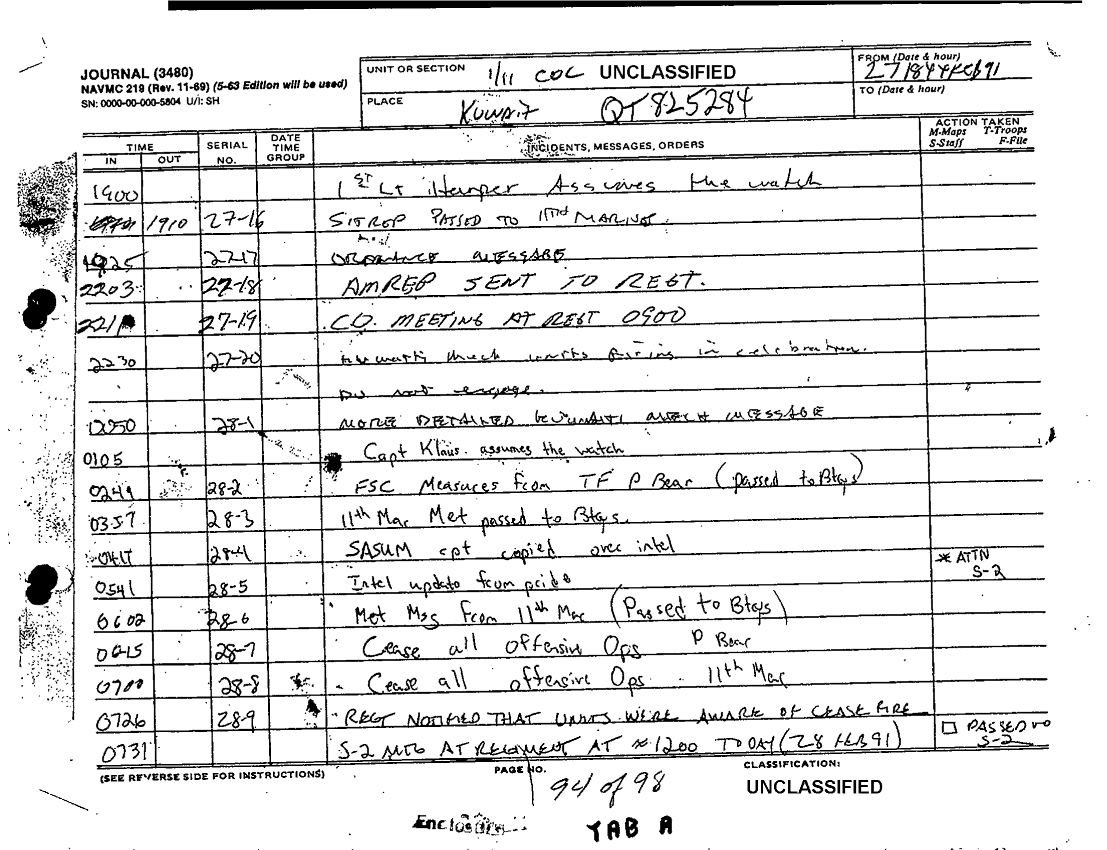 JOURNAL (3480)
NAVMC 219 (Rev. 11-69) (5-63 Edition will be used)
SN: 0000-00-000-5804 U/I: SH
UNIT OR SECTION 1/11 COC UNCLASSIFIED
PLACE Kuwait QT 825284
FROM (Date & hour)
271844FEB91
TO (Date & hour)
TIME
IN OUT
SERIAL NO.
DATE TIME GROUP
INCIDENTS, MESSAGES, ORDERS
ACTION TAKEN
M-Maps T-Troops
S-Staff F-File
1900 1ST Lt Harper Assumes the watch
1910 27-16 SITREP PASSED TO MARINES.
1925 27-17 ORDNANCE MESSAGE
2203 27-18 AMREP SENT TO REGT.
221 27-19 CO. MEETING AT REGT 0900
2230 27-20 Kuwaiti Mech units firing in celebration.
Do not engage.
0050 28-1 MORE DETAILED KUWAITI MECH MESSAGE
0105 Capt Klaus assumes the watch
0249 28-2 FSC Measures from TF P Bear (passed to Btrys)
0357 28-3 11th Mar Met passed to Btrys.
0417 28-4 SASUM rpt copied over intel
0541 28-5 Intel update from pride * ATTN S-2
0602 28-6 Met Msg from 11th Mar (Passed to Btrys)
0615 28-7 Cease all offensive Ops P Bear
0700 28-8 Cease all offensive Ops 11th Mar
0726 28-9 REGT NOTIFIED THAT UNITS WERE AWARE OF CEASE FIRE
0731 S-2 MTG AT REGIMENT AT 1200 TODAY (28 FEB 91) PASSED TO S-2
(SEE REVERSE SIDE FOR INSTRUCTIONS)
PAGE NO.
94 of 98
CLASSIFICATION:
UNCLASSIFIED
Enclosure
TAB A